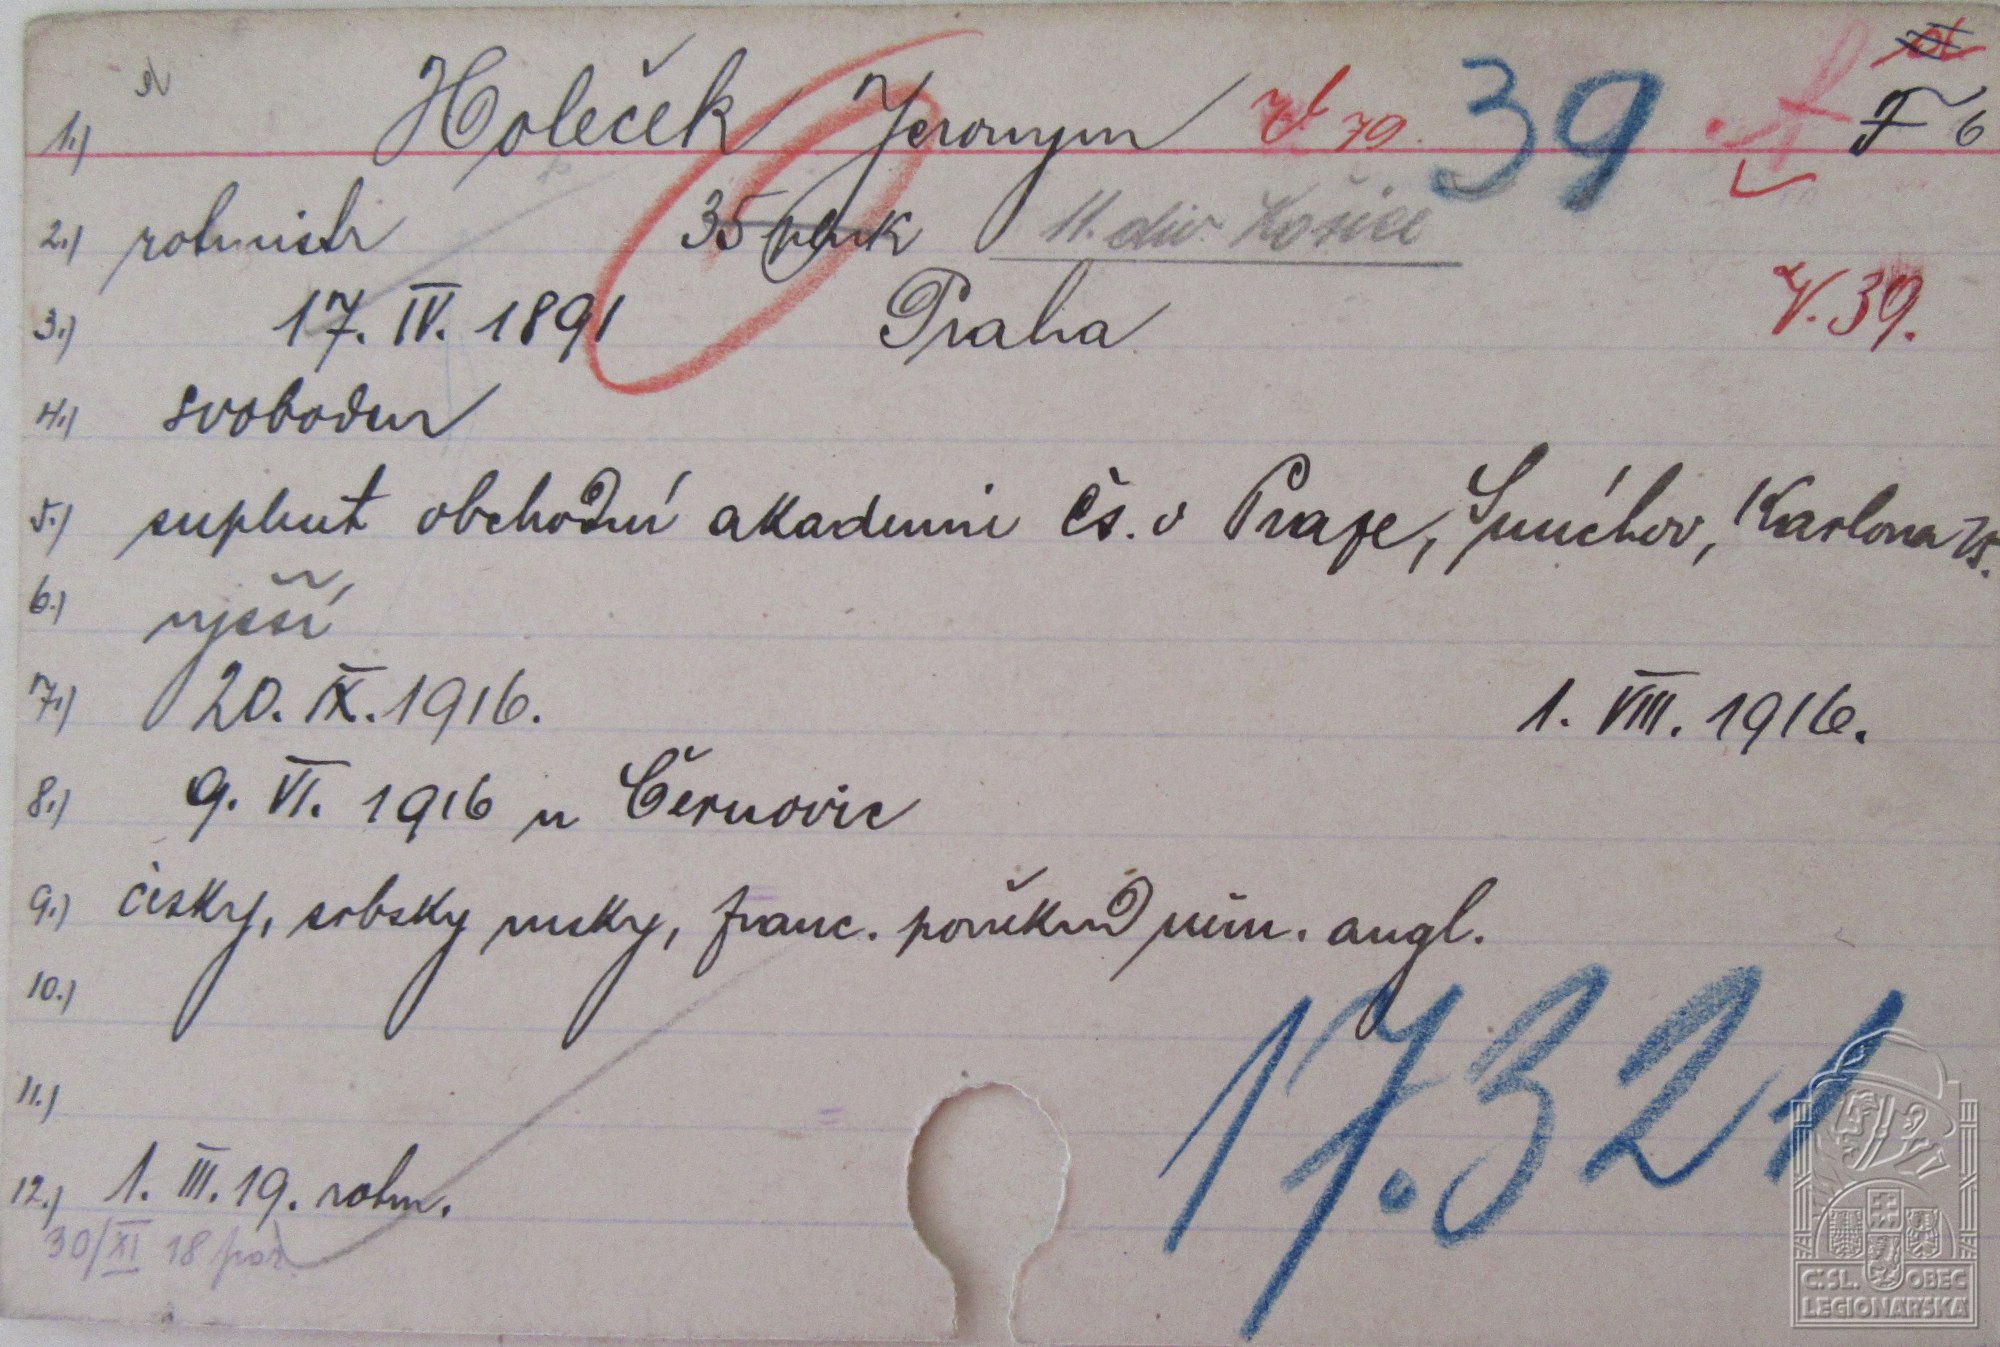 1.) Holeček Jeronym V 39. 39 F 6
2.) rotmistr 35 pluk 11. div. Košice
3.) 17. IV. 1891 Praha V. 39.
4.) svoboden
5.) suplent obchodní akademie čs. v Praze, Smíchov, Karlova 75.
6.) njěší
7.) 20. IX. 1916. 1. VIII. 1916.
8.) 9. VI. 1916 u Černovic
9.) česky, srbsky rusky, franc. poněkud něm. angl.
10.)
17.321
11.)
12.) 1. III. 19. rotm.
30/XI 18 por
Č.SL. OBEC
LEGIONÁŘSKÁ